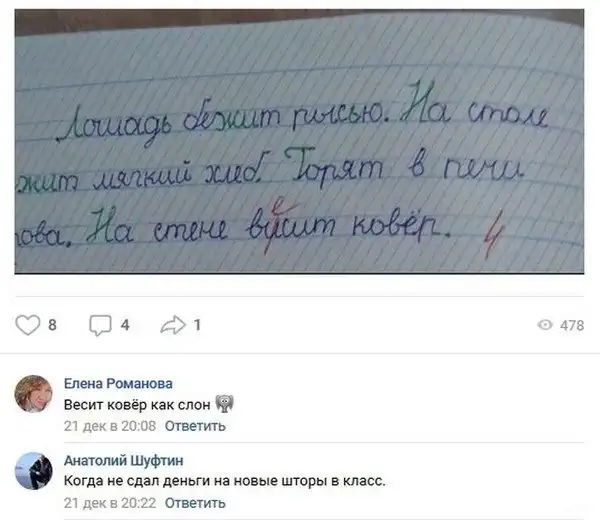 Лошадь бежит рысью. На столе
жит мягкий хлеб. Горят в печи
рова. На стене висит ковёр. 4
е
8
4
1
478
Елена Романова
Весит ковёр как слон 🐘
21 дек в 20:08 Ответить
Анатолий Шуфтин
Когда не сдал деньги на новые шторы в класс.
21 дек в 20:22 Ответить